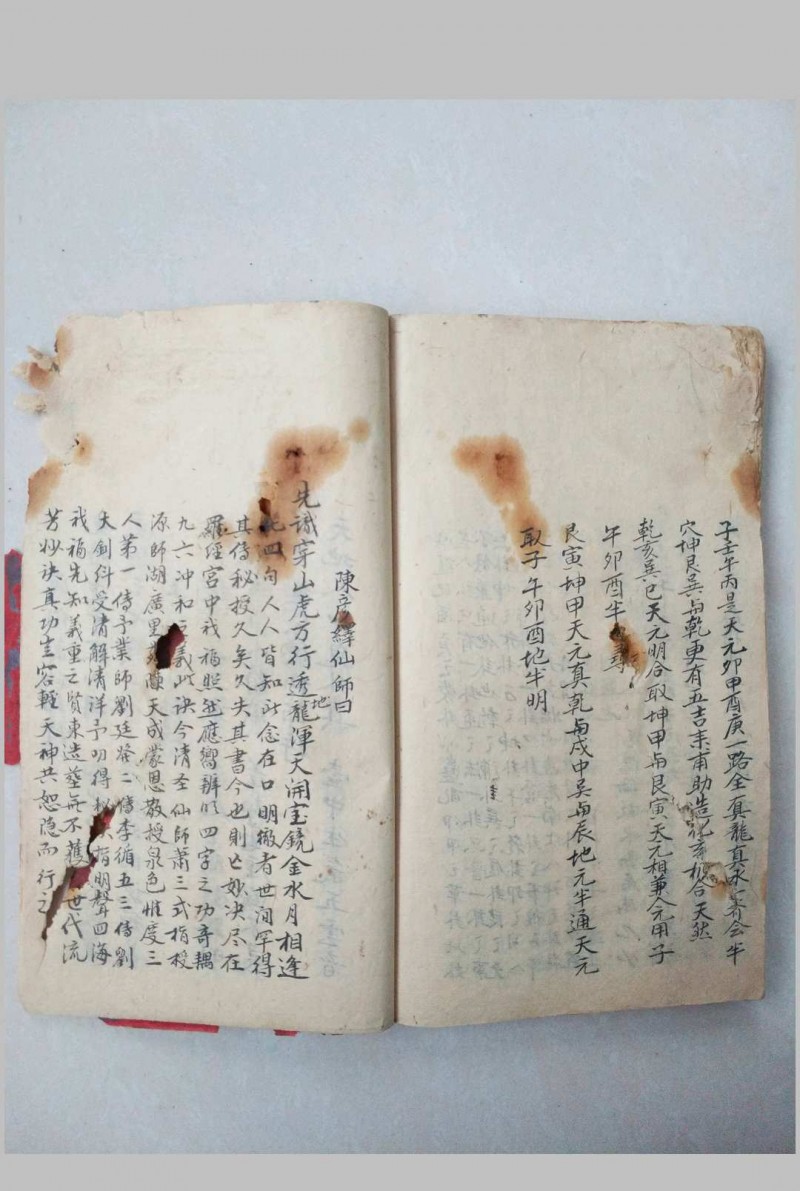 子壬午丙是天元卯甲酉庚一路全真龍真水齊会半
穴坤艮巽与乾更有五吉來甫助造化亥机合天然
乾亥巽巳天元明合取坤甲与艮寅天元相兼人元用子
午卯酉半
艮寅坤甲天元真乾与戌中巽与辰地元半通天元
取子午卯酉地半明
陳彦繹仙師曰
先識穿山虎方行透地龍渾天開宝鏡金水月相逢
此四句人人皆知此念在口明徹者世间罕得
其傳秘授久矣久失其書今也則亡妙决尽在
羅經宮中我福照
應嚮辨以四字之功奇耦
九六冲和之義此訣今清圣仙師蕭三式指授
源師湖廣里
天成蒙恩教授泉色惟度三
人第一傳予業師劉廷
二傳李循五三傳劉
大劍
受清解清洋予叨得秘
指明聲四海
我福先知義重之賢東造塋無不
世代流
芳妙诀真功
容輕天神共恕隐而行之